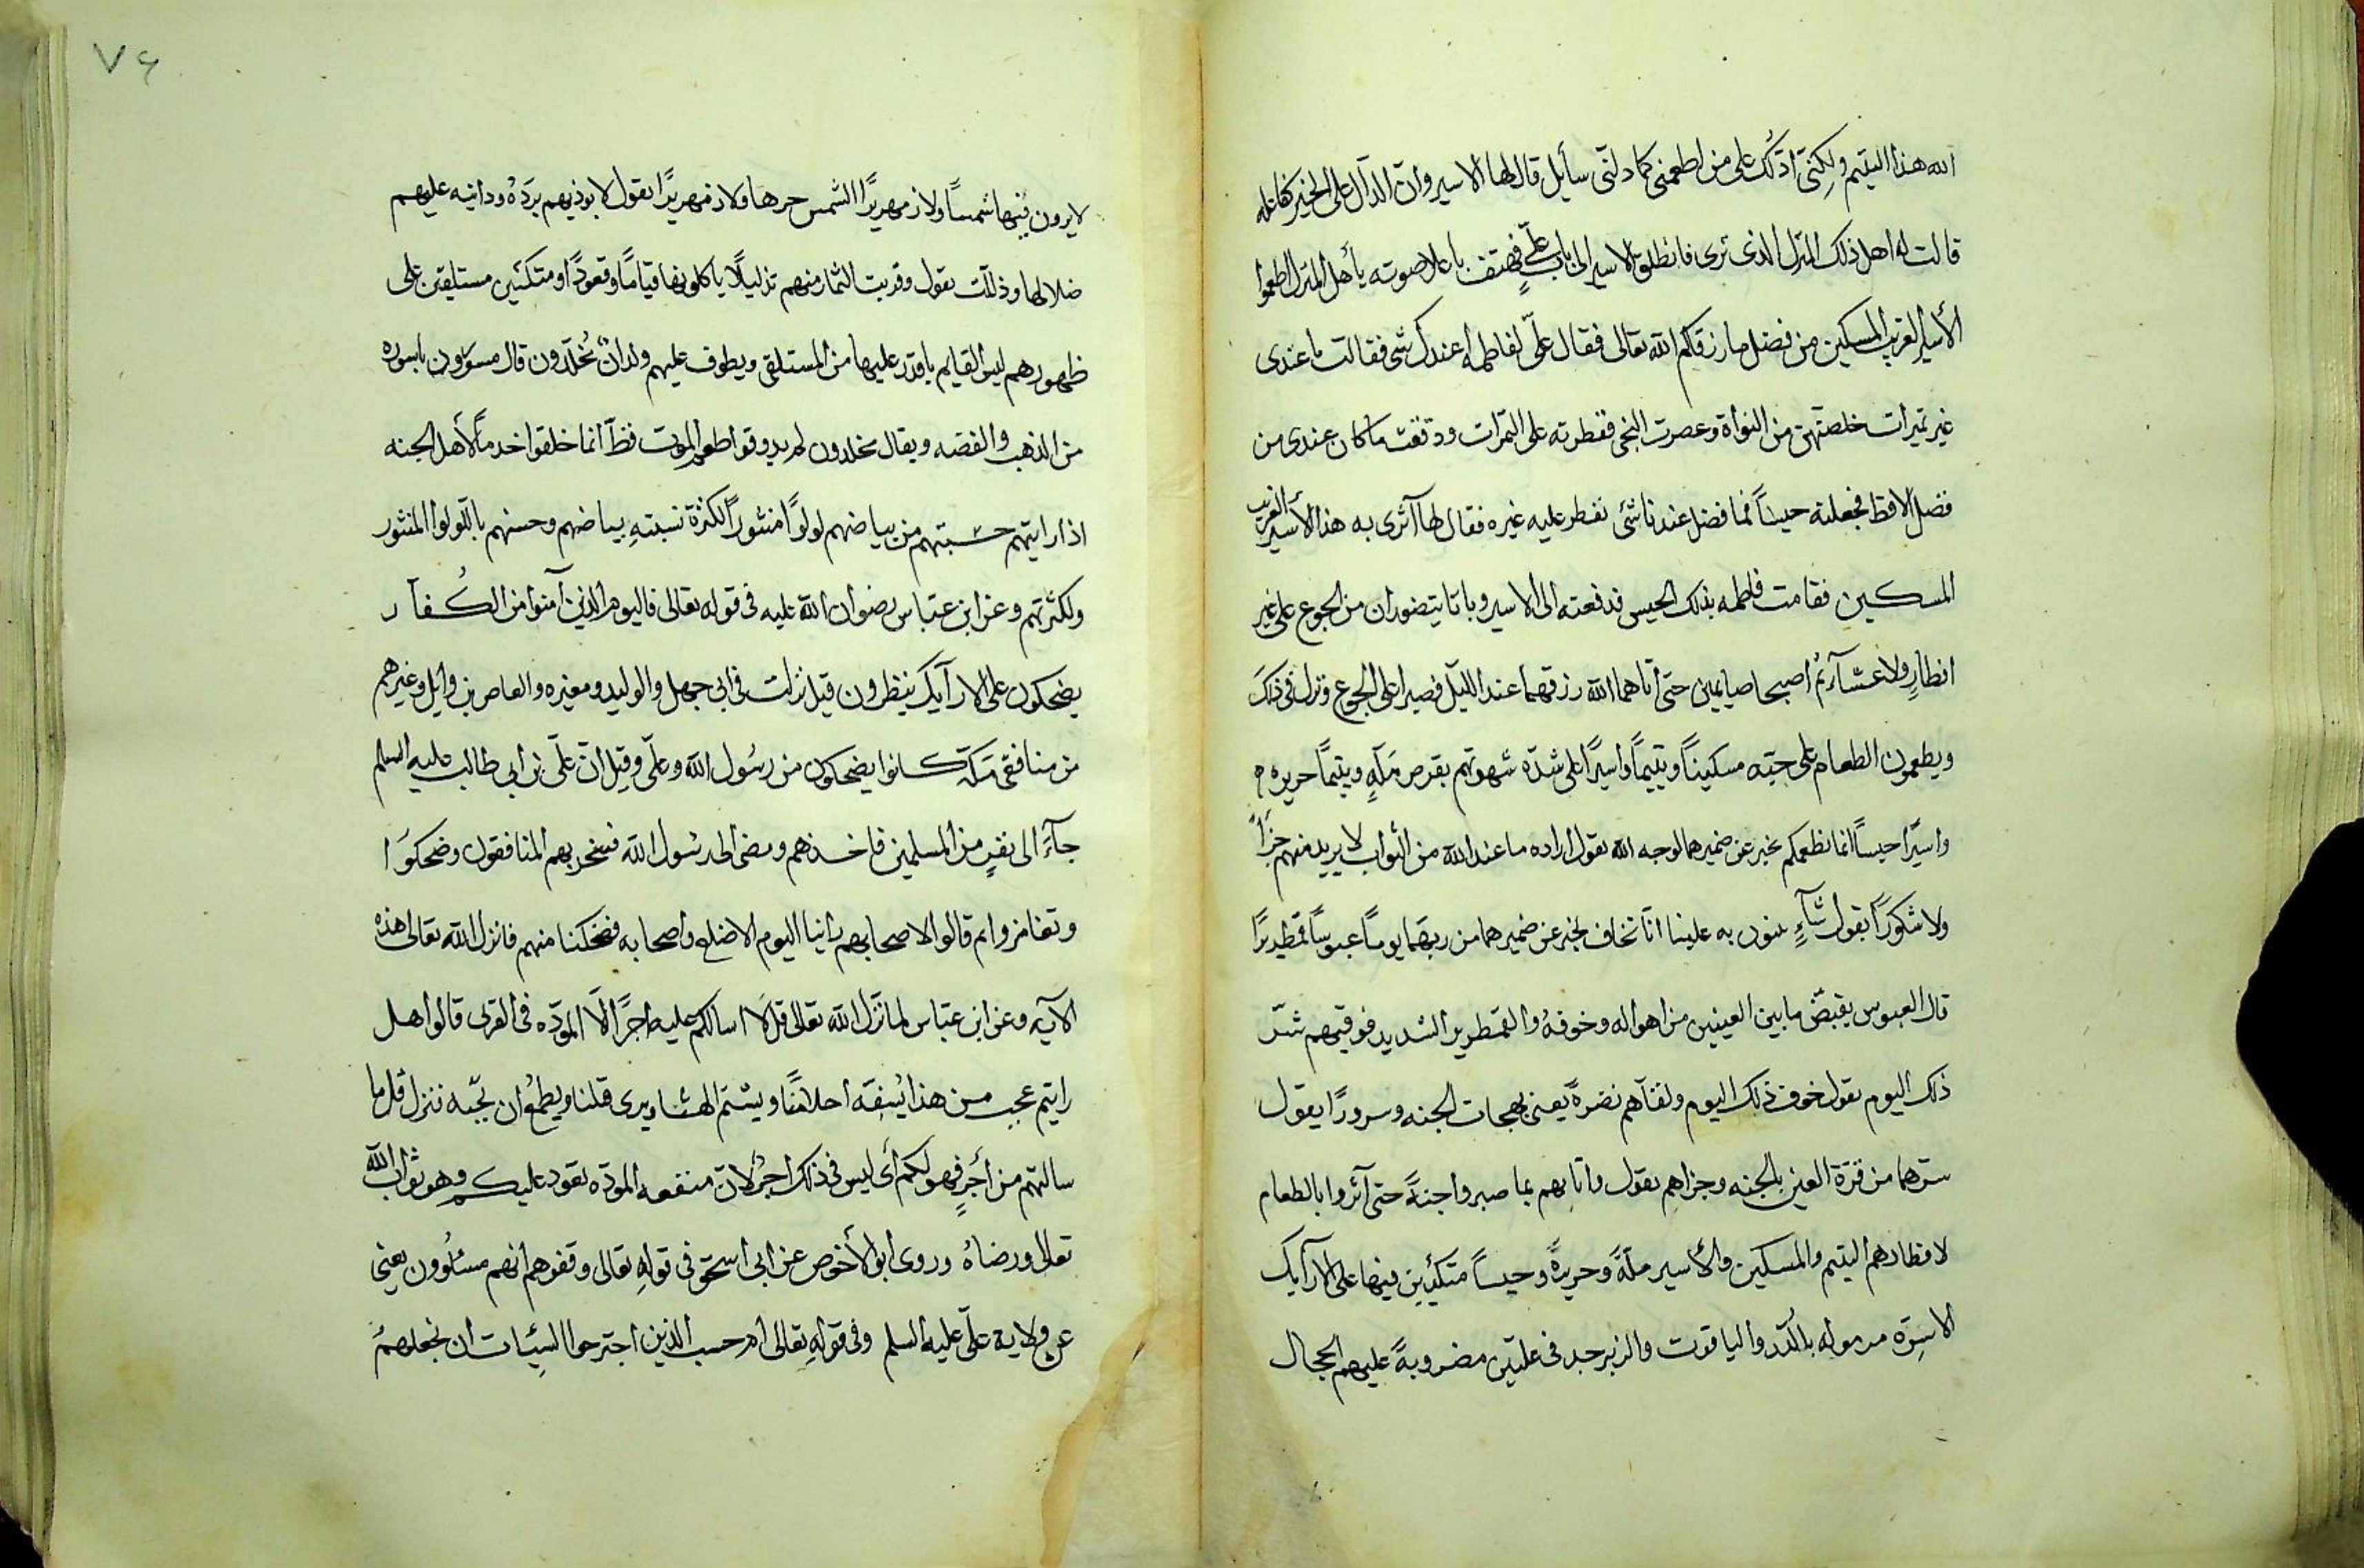 الله هذا اليتيم ولكِنّى ادّلكَ على من اطعمنى كما دلّنى سآيل قال لها الاسير وانّ الدآل على الخير كفاعله
قالت له اهل ذلك المنزل الذى ترى فانطلق الاسير الى باب علىٍّ فهتف باعلا صوته يا أهل المنزل اطعموا
الأسير الغريب المسكين من فضل ما رزقكم الله تعالى فقال علىّ لفاطمه اعندك شى فقالت ما عندى
غير تميرات خلصتهنّ من النواة وعصرت النحى فقطرته على التمرات ودققت ما كان عندى من
فضل الاقط فجعلته حيسًا فما فضل عندنا شئ نفطر عليه غيره فقال لها آثرى به هذا الأسير الغريب
المسكين فقامت فاطمه بذلك الحيس فدفعته الى الاسير وباتا يتضوران من الجوع على غير
افطارٍ ولا عشآءٍ ثم اصبحا صايمين حتى اتاهما الله رزقهما عند الليل فصيرا على الجوع ونزل فى ذلك
ويطعمون الطعام على حبّه مسكينًا ويتيمًا واسيرًا على شدّه شهوتهم بقرص مَلّهٍ ويتيمًا حريره
واسيرًا حيسًا انما نطعمكم يخبر عن ضميرهما لوجه الله يقول اراده ما عند الله من الثواب لا يريد منهم جزآءً
ولا شكورًا يقول ثنآءٍ يثنون به علينا انّا نخاف يخبر عن ضميرهما من ربّهما يومًا عبوسًا قمطريرًا
قال العبوس يقبّض ما بين العينين من اهواله وخوفهُ والقمطرير الشديد فوقيهم شرّ
ذلك اليوم يقول خوف ذلك اليوم ولقّآهم نضرةً يعنى بهجات الجنه وسرورًا يقول
سترهما من قرّة العين بالجنه وجزاهم يقول واثابهم بما صبروا جنةً حتى آثروا بالطعام
لافطارهم اليتيم والمسكين والأسير ملّةً وحريرةً وحيسًا متكئين فيها على الارآيك
الاسرّه مرموله بالدّر والياقوت والزبرجد فى عليّين مضروبةً عليهم الحجال
٧٤
لا يرون فيها شمسًا ولا زمهريرًا الشمس حرها ولا زمهريرًا يقول لا يوذيهم بردُهُ ودانيه عليهم
ضلالها وذلّلت يقول وقربت الثمار منهم تذليلًا ياكلونها قيامًا وقعودًا ومتكئين مستلقين على
ظهورهم ليس القايم باقدر عليها من المستلقى ويطوف عليهم ولدانٌ مُخلّدون قال مسوّرون باسوره
من الذهب والفضه ويقال مخلدون لم يذوقوا طعم الموت قطّ انما خلقوا خدمًا لأهل الجنه
اذا رايتهم حسبتهم من بياضهم لولوًا منثورًا لكثرة نسبتهِ بياضهم وحسنهم باللّولوا المنثور
ولكثرتهم وعن ابن عبّاس رضوان الله عليه فى قوله تعالى فاليوم الذين آمنوا من الكُفآر
يضحكون على الارآيك ينظرون قيل نزلت فى ابى جهل والوليد ومغيره والعاص بن وايل وغيرهم
من منافقى مكّة كانوا يضحكون من رسُول الله وعلىّ وقيل انّ علّى بن ابى طالب عليه السلم
جآءَ الى نفرٍ من المسلمين فاخذهم ومضى الى رسُول الله فسخر بهم المنافقون وضحكوا
وتغامزوا ثم قالوا لاصحابهم راينا اليوم الاضلع واصحابه فضحكنا منهم فانزل الله تعالى هذه
الآيه وعن ابن عبّاس لما نزّل الله تعالى قل لا اسالكم عليه اجرًا الّا المودّه فى القربى قالوا هل
رايتم عجب من هذا يُسَفِّه احلامَنًا ويشتم الهتنا ويرى قتلنا ويطمع ان نحبّه نزل قل ما
سالتهم من أجرٍ فهو لكم أى ليس فى ذلك اجرٌ لانّ منفعه المودّه تعود عليكم وهو ثواب الله
تعالى ورضاهُ وروى ابو الأخوص عن ابى اسحق فى قوله تعالى وقفوهم انهم مسئولُون يعنى
عن ولاية علىّ عليه السلم وفى قوله تعالى ام حسب الذين اجترحوا السيّئات ان نجعلهمُ